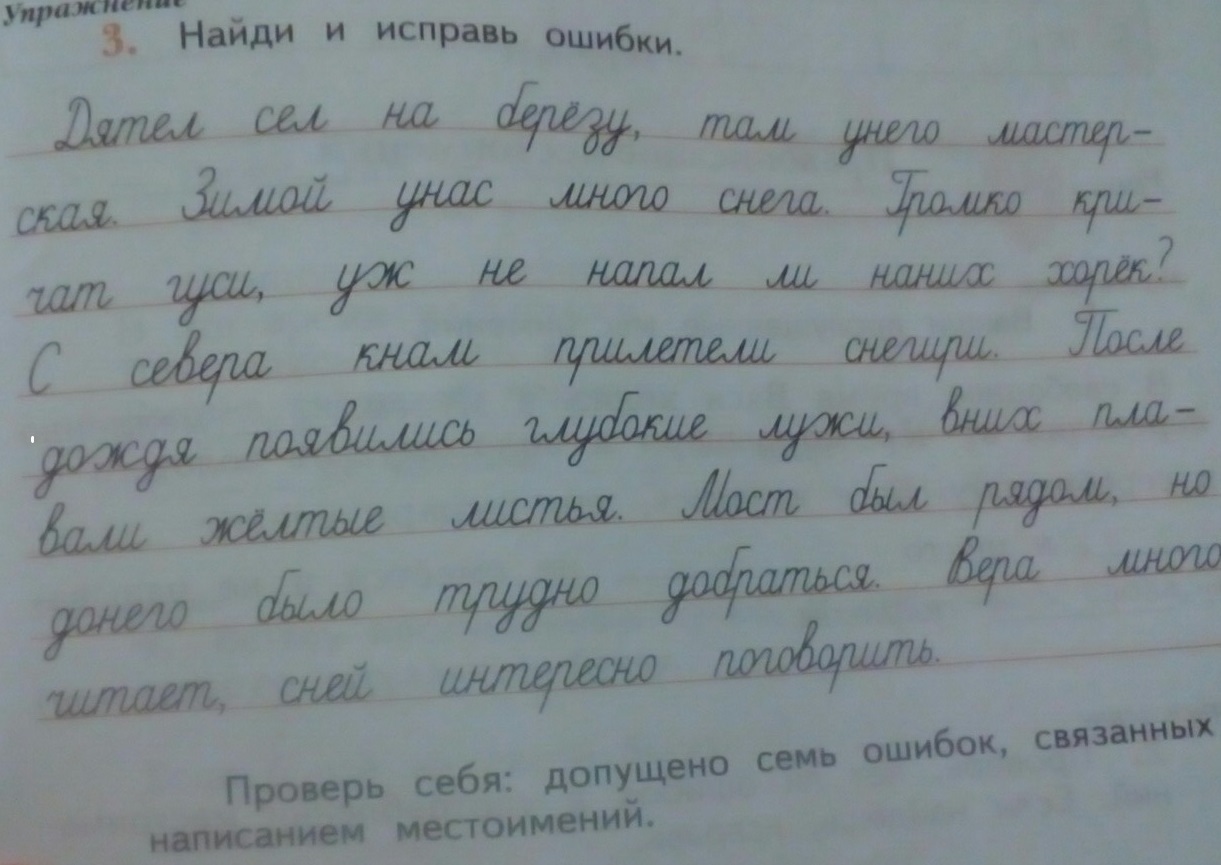 Упражнение
3. Найди и исправь ошибки.
Дятел сел на берёзу, там унего мастер-
ская. Зимой унас много снега. Громко кри-
чат гуси, уж не напал ли наних хорёк?
С севера кнам прилетели снегири. После
дождя появились глубокие лужи, вних пла-
вали жёлтые листья. Мост был рядом, но
донего было трудно добраться. Вера много
читает, сней интересно поговорить.
Проверь себя: допущено семь ошибок, связанных
написанием местоимений.